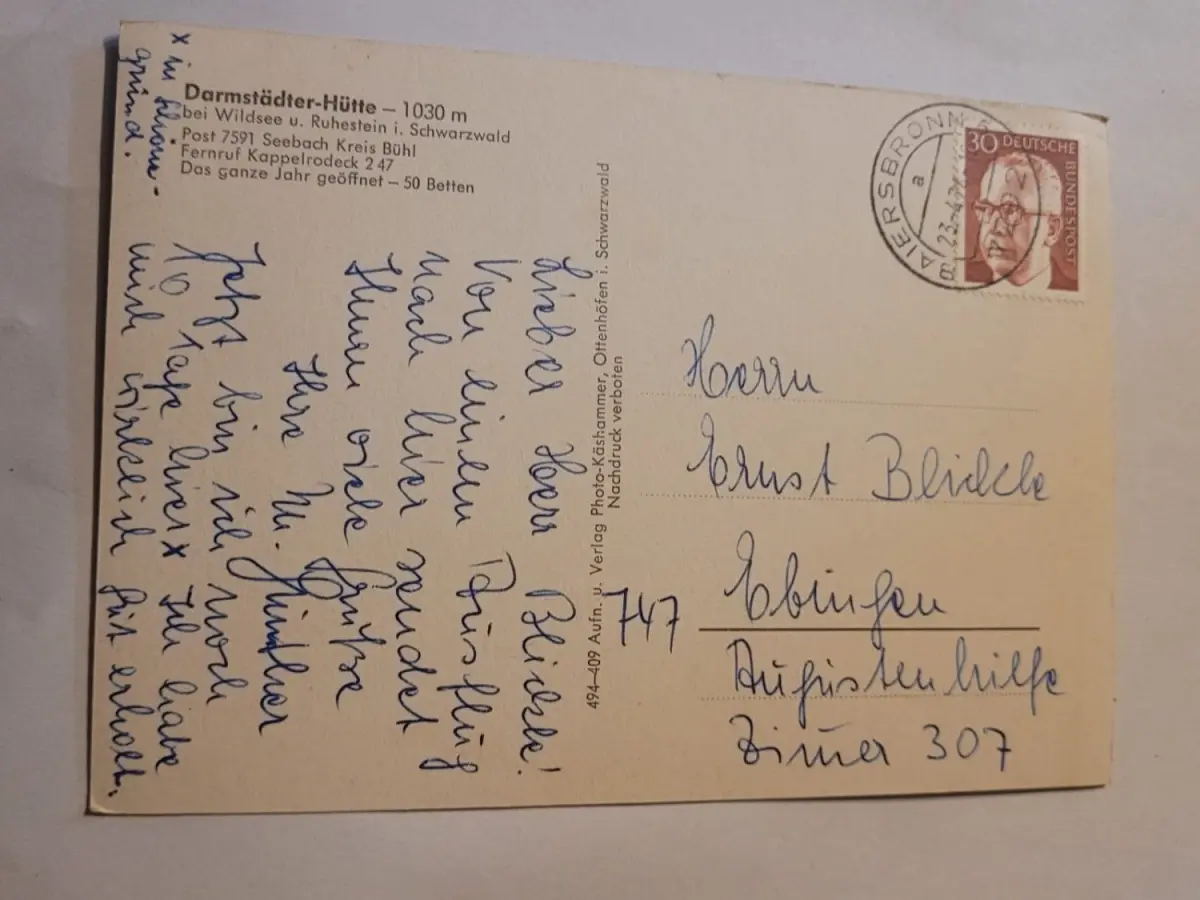 Darmstädter-Hütte – 1030 m
bei Wildsee u. Ruhestein i. Schwarzwald
Post 7591 Seebach Kreis Bühl
Fernruf Kappelrodeck 2 47
Das ganze Jahr geöffnet – 50 Betten
Lieber Herr Blickle!
Von einem Ausflug
nach hier sendet
Ihnen viele Grüße
Ihre M. Günther
Jetzt bin ich noch
10 Tage hier x Ich habe
mich wirklich gut erholt.
x in
grund.
494–409 Aufn. u. Verlag Photo-Käshammer, Ottenhöfen i. Schwarzwald
Nachdruck verboten
BAIERSBRONN
a
23.-4.
30 DEUTSCHE
BUNDESPOST
Herrn
Ernst Blickle
747 Ebingen
Augustenhilfe
Zimer 307